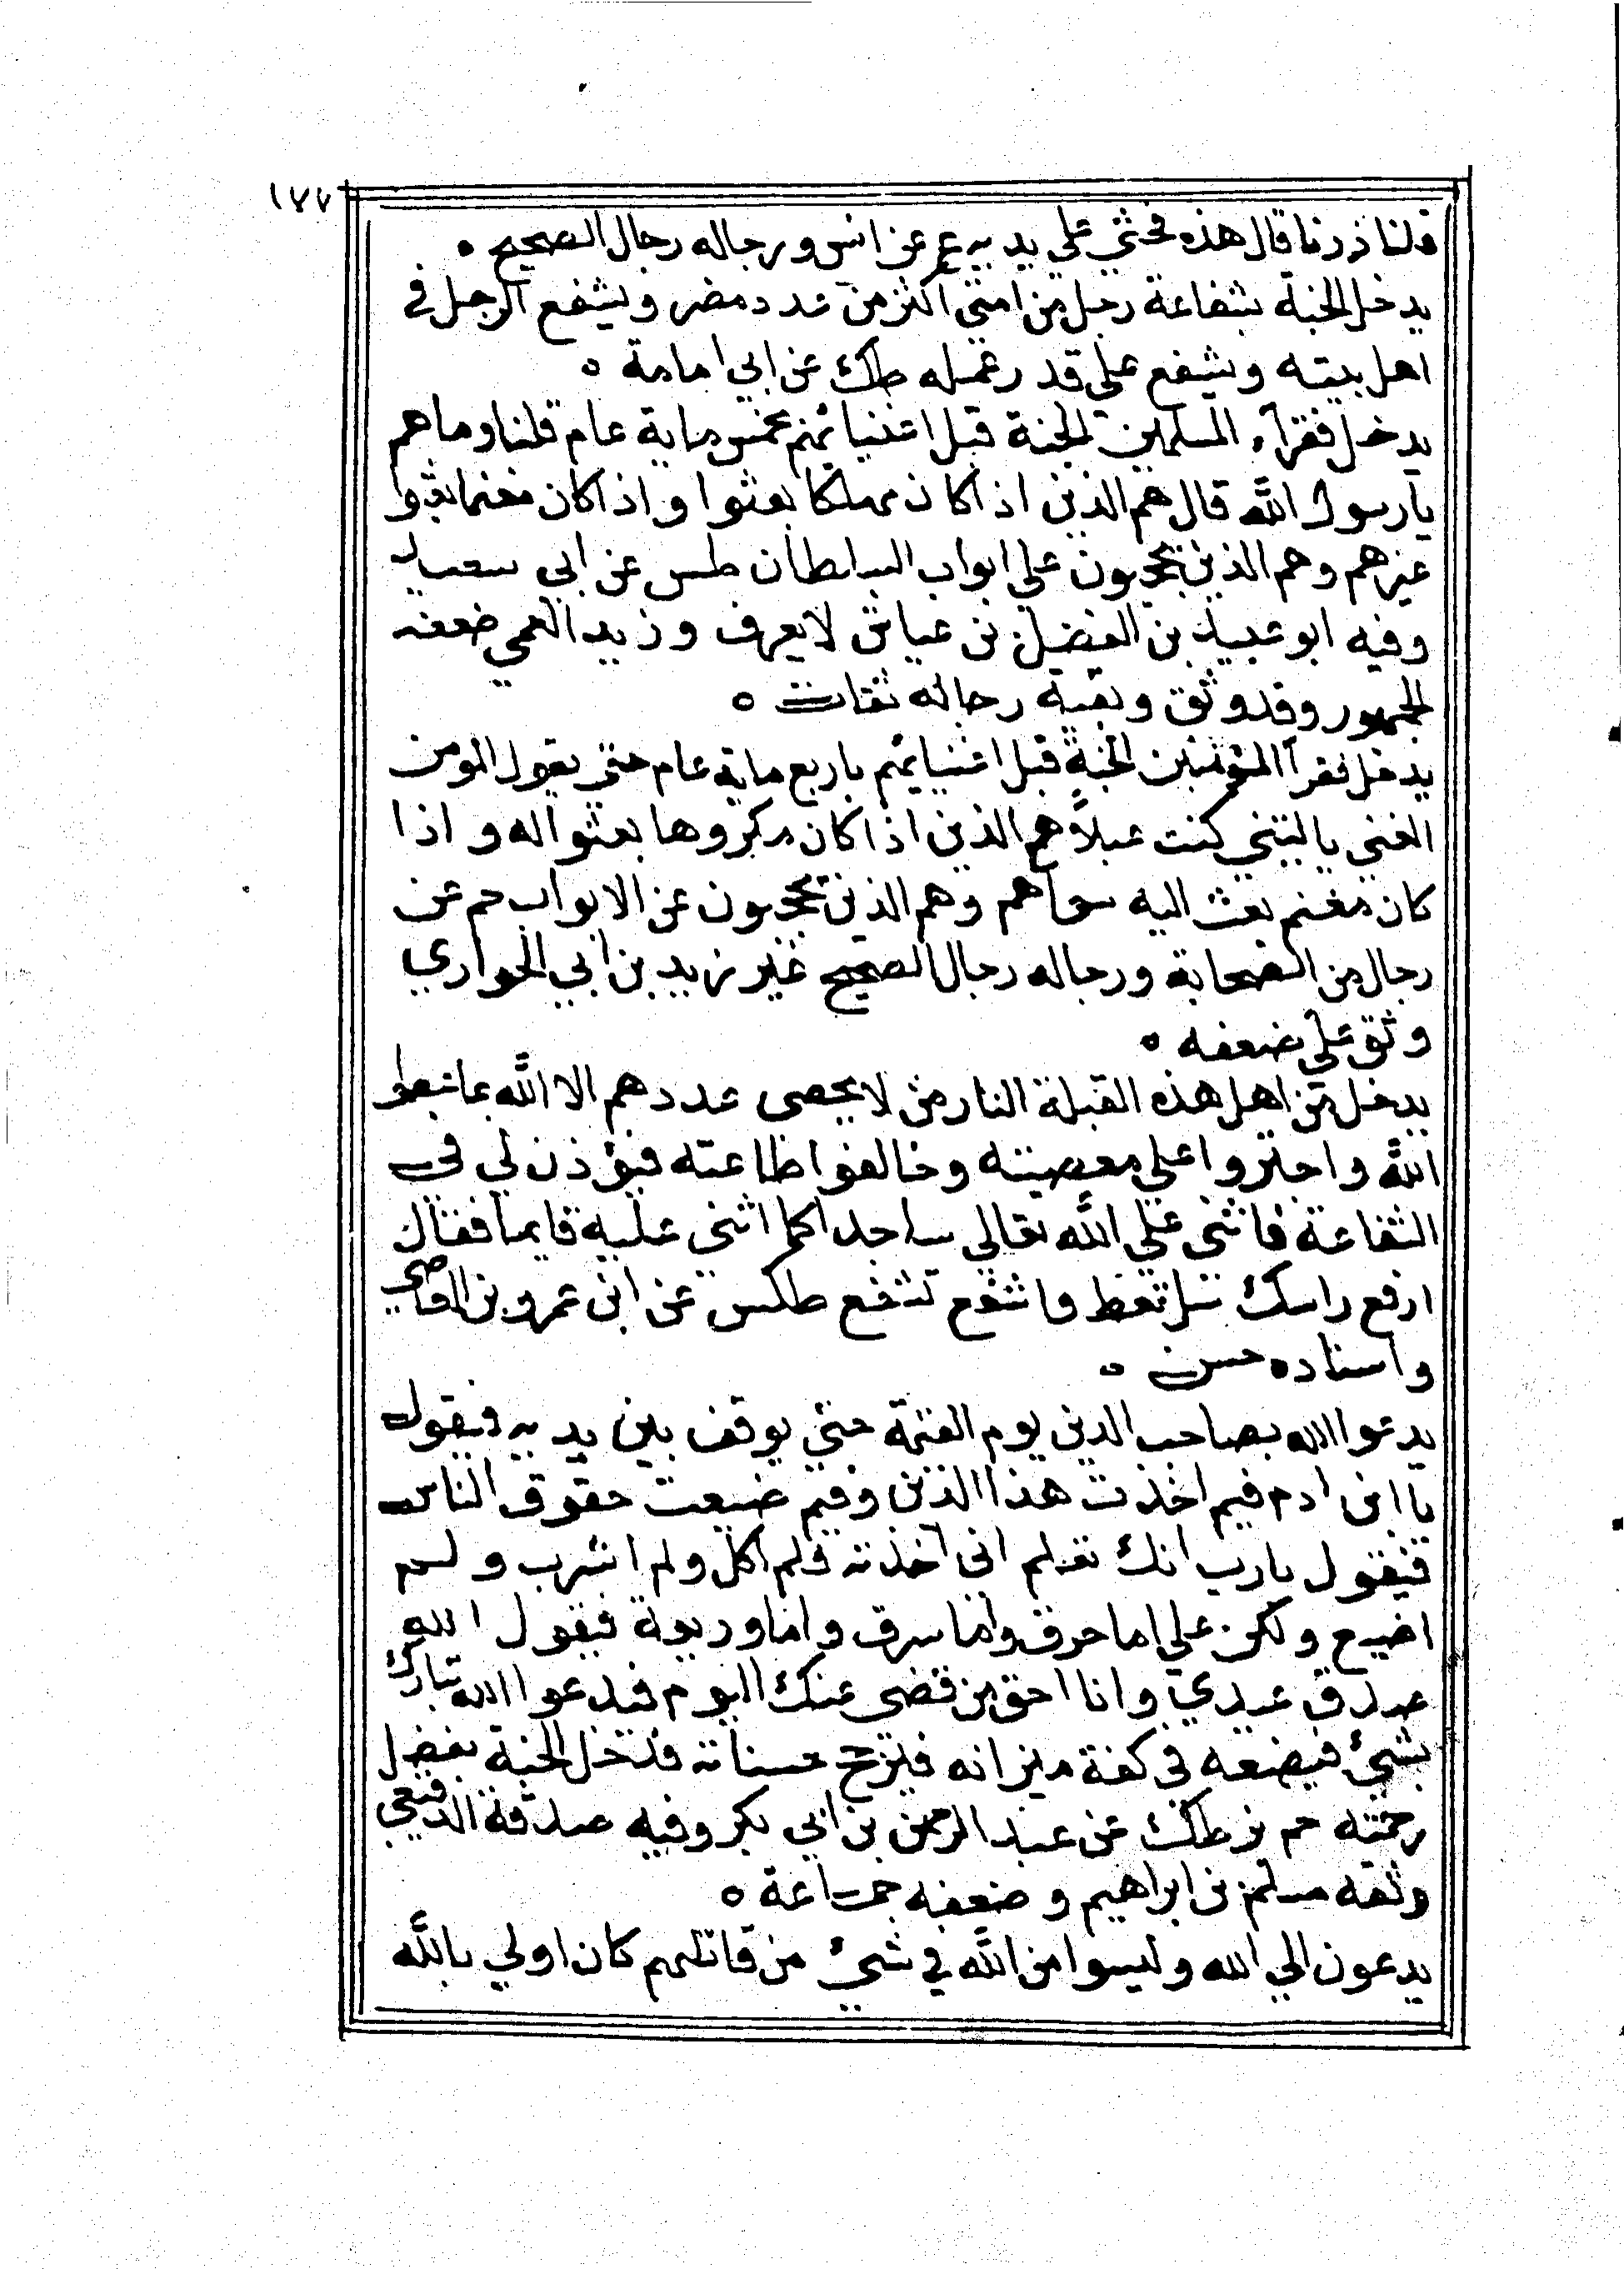 ١٧٧
قلنا زدنا قال هذه فحثى على يديه ع عن انس ورجاله رجال الصحيح ه
يدخل الجنة بشفاعة رجل من امتي اكثر من عدد مضر ويشفع الرجل في
اهل بيته ويشفع على قدر عمله طك عن ابي امامة ه
يدخل فقرآء المسلمين الجنة قبل اغنيائهم بخمس ماية عام قلنا وما هم
يارسول الله قال هم الذين اذا كان مهلكا بعثوا واذا كان مغنما بعثوا
غيرهم وهم الذين يحجبون على ابواب السلطان طس عن ابي سعيد
وفيه ابو عبيد بن الفضيل بن عياش لا يعرف وزيد العمي ضعفه
الجمهور وقد وثق وبقية رجاله ثقات ه
يدخل فقرآ المؤمنين الجنة قبل اغنيائهم باربع ماية عام حتى يقول المومن
الغني ياليتني كنت عيلا هم الذين اذا كان مكروها بعثوا له واذا
كان مغنم بعث اليه سواهم وهم الذين يحجبون عن الابواب حم عن
رجال من الصحابة ورجاله رجال الصحيح غير زيد بن ابي الحواري
وثق على ضعفه ه
يدخل من اهل هذه القبلة النار من لا يحصى عددهم الا الله بما عصوا
الله واجتروا على معصيته وخالفوا طاعته فيؤذن لي في
الشفاعة فاثني على الله تعالى ساجدا كما اثني عليه قايما فقال
ارفع راسك سل تعط واشفع تشفع طكس عن ابن عمرو بن العاصي
واسناده حسن ه
يدعوا الله بصاحب الدين يوم القيمة حتى يوقف بين يديه فيقول
يا ابن ادم فيم اخذت هذا الدين وفيم ضيعت حقوق الناس
فيقول يارب انك تعلم اني اخذته فلم اكل ولم اشرب ولم
اضيع ولكن على اما حرق واما سرق واما وضيعة فيقول الله
صدق عبدي وانا احق من قضى عنك اليوم فيدعوا الله تبارك
بشيئ فيضعه في كفة ميزانه فيرجح حسناته فيدخل الجنة بفضل
رحمته حم بز طك عن عبد الرحمن بن ابي بكر وفيه صدقة الدقيقي
وثقه مسلم بن ابراهيم وضعفه جماعة ه
يدعون الى الله وليسوا من الله في شيئ من قاتلهم كان اولى بالله